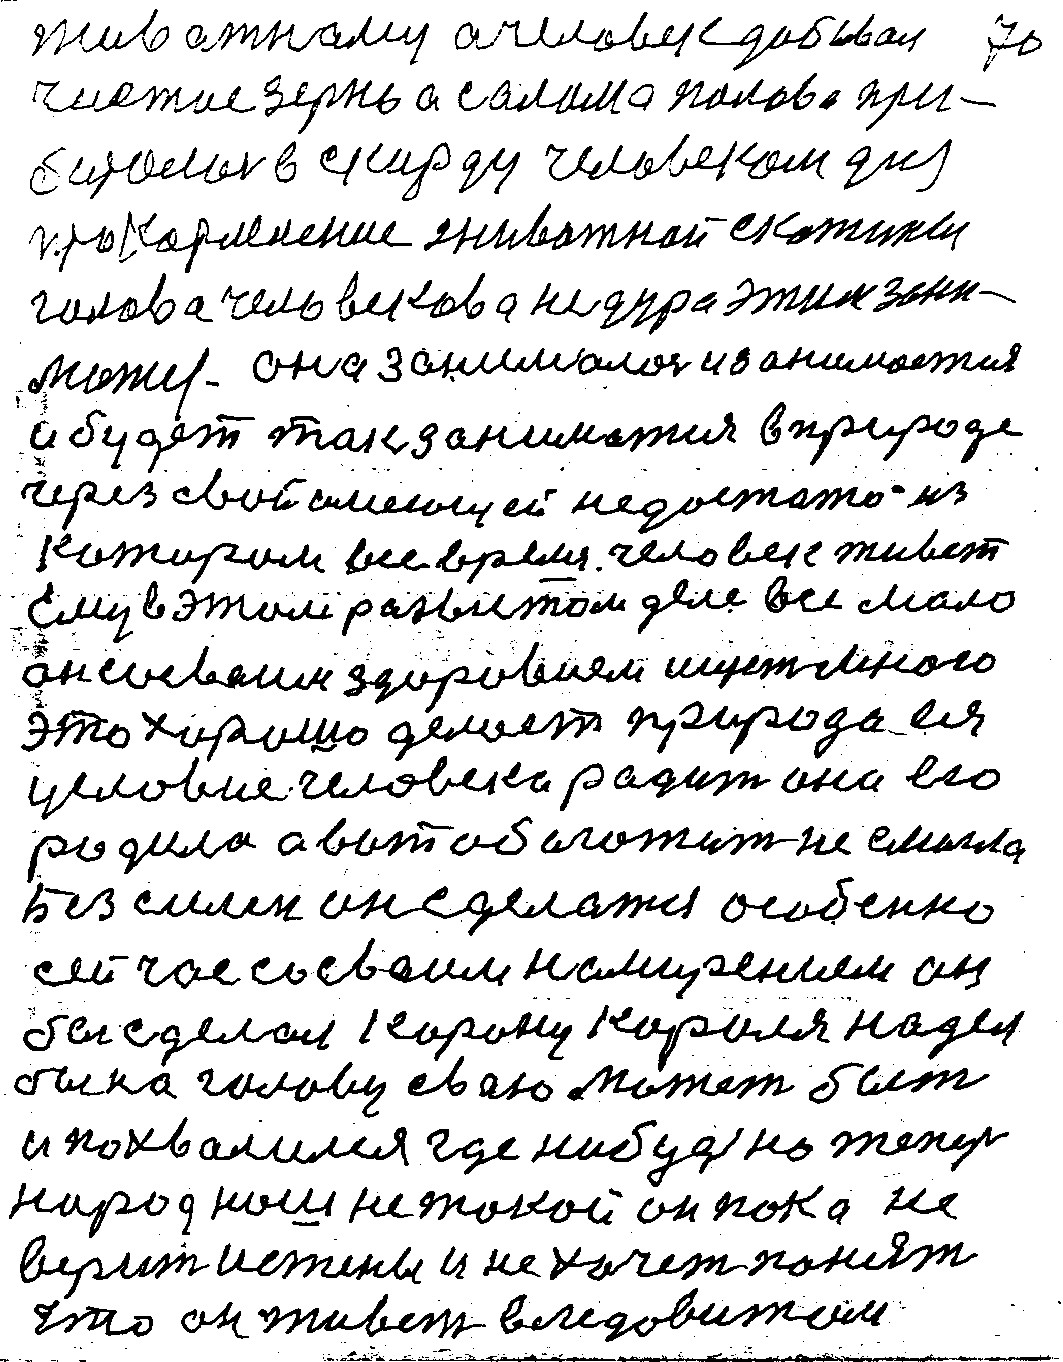 живатнаму а человек добывал 70
чистае зерно а салома полова при-
биралось в скирду человеком для
прокармление живатной скотины
голова человекова не дура этим зани-
мать. она занималась и занимается
и будет так заниматся в природе
через свой имеющей недостато- из
катором все время человек живет
ему в этом развитом деле все мало
он со сваим здоровием ищет много
это хорошо делает природа ей
условие человека радит она его
родила а вот обогатит не смогла
Без силен он сделатся особенно
сей час со сваим намирением он
бы сделал Карону Кароля надел
бы на голову сваю может быт
и похвалился где нибудь но тепер
народ наш не такой он пока не
верит истены и не хочет понят
что он живет в ледовитом